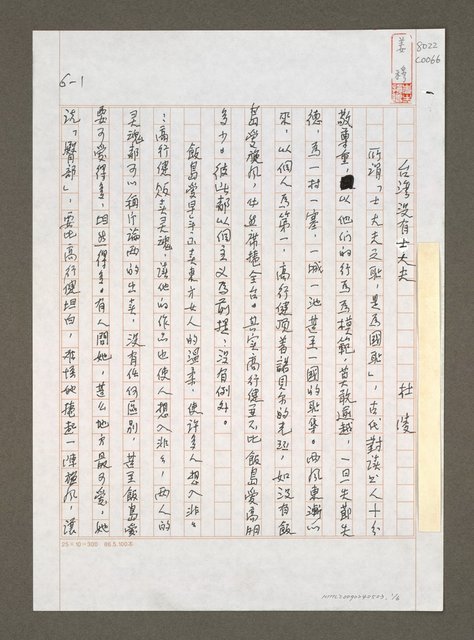 姜穆
8022
C0066
6-1
台灣沒有士大夫
杜凌
所謂「士大夫之恥，是為國恥」，古代對讀書人十分
敬尊重，以他們的行為為模範，莫大敢逾越，一旦失節失
德，為一村一寨，一城一池甚至一國的恥辱。西風東漸以
來，以個人為第一，高行健頂著諾貝爾的光環，如沒有飯
島愛旋風，什麼席捲全台。其實高行健並不比飯島愛高明
多少。彼此都以個主义為前提，沒有例外。
飯島愛是手正卖東方女人的溫柔，使許多人想入非非
；高行健販卖灵魂，讀他的作品也使人想入非非，兩人的
灵魂都可以稱斤論兩的出卖，沒有任何區別，甚至飯島愛
要可愛得多，坦然得多。有人問她，甚么地方最可愛，她
說「臀部」，要比高行健坦白，在情她捲起一陣旋風，讓
25×10=300 86.5.100本
NMTL20090240503, 1/6